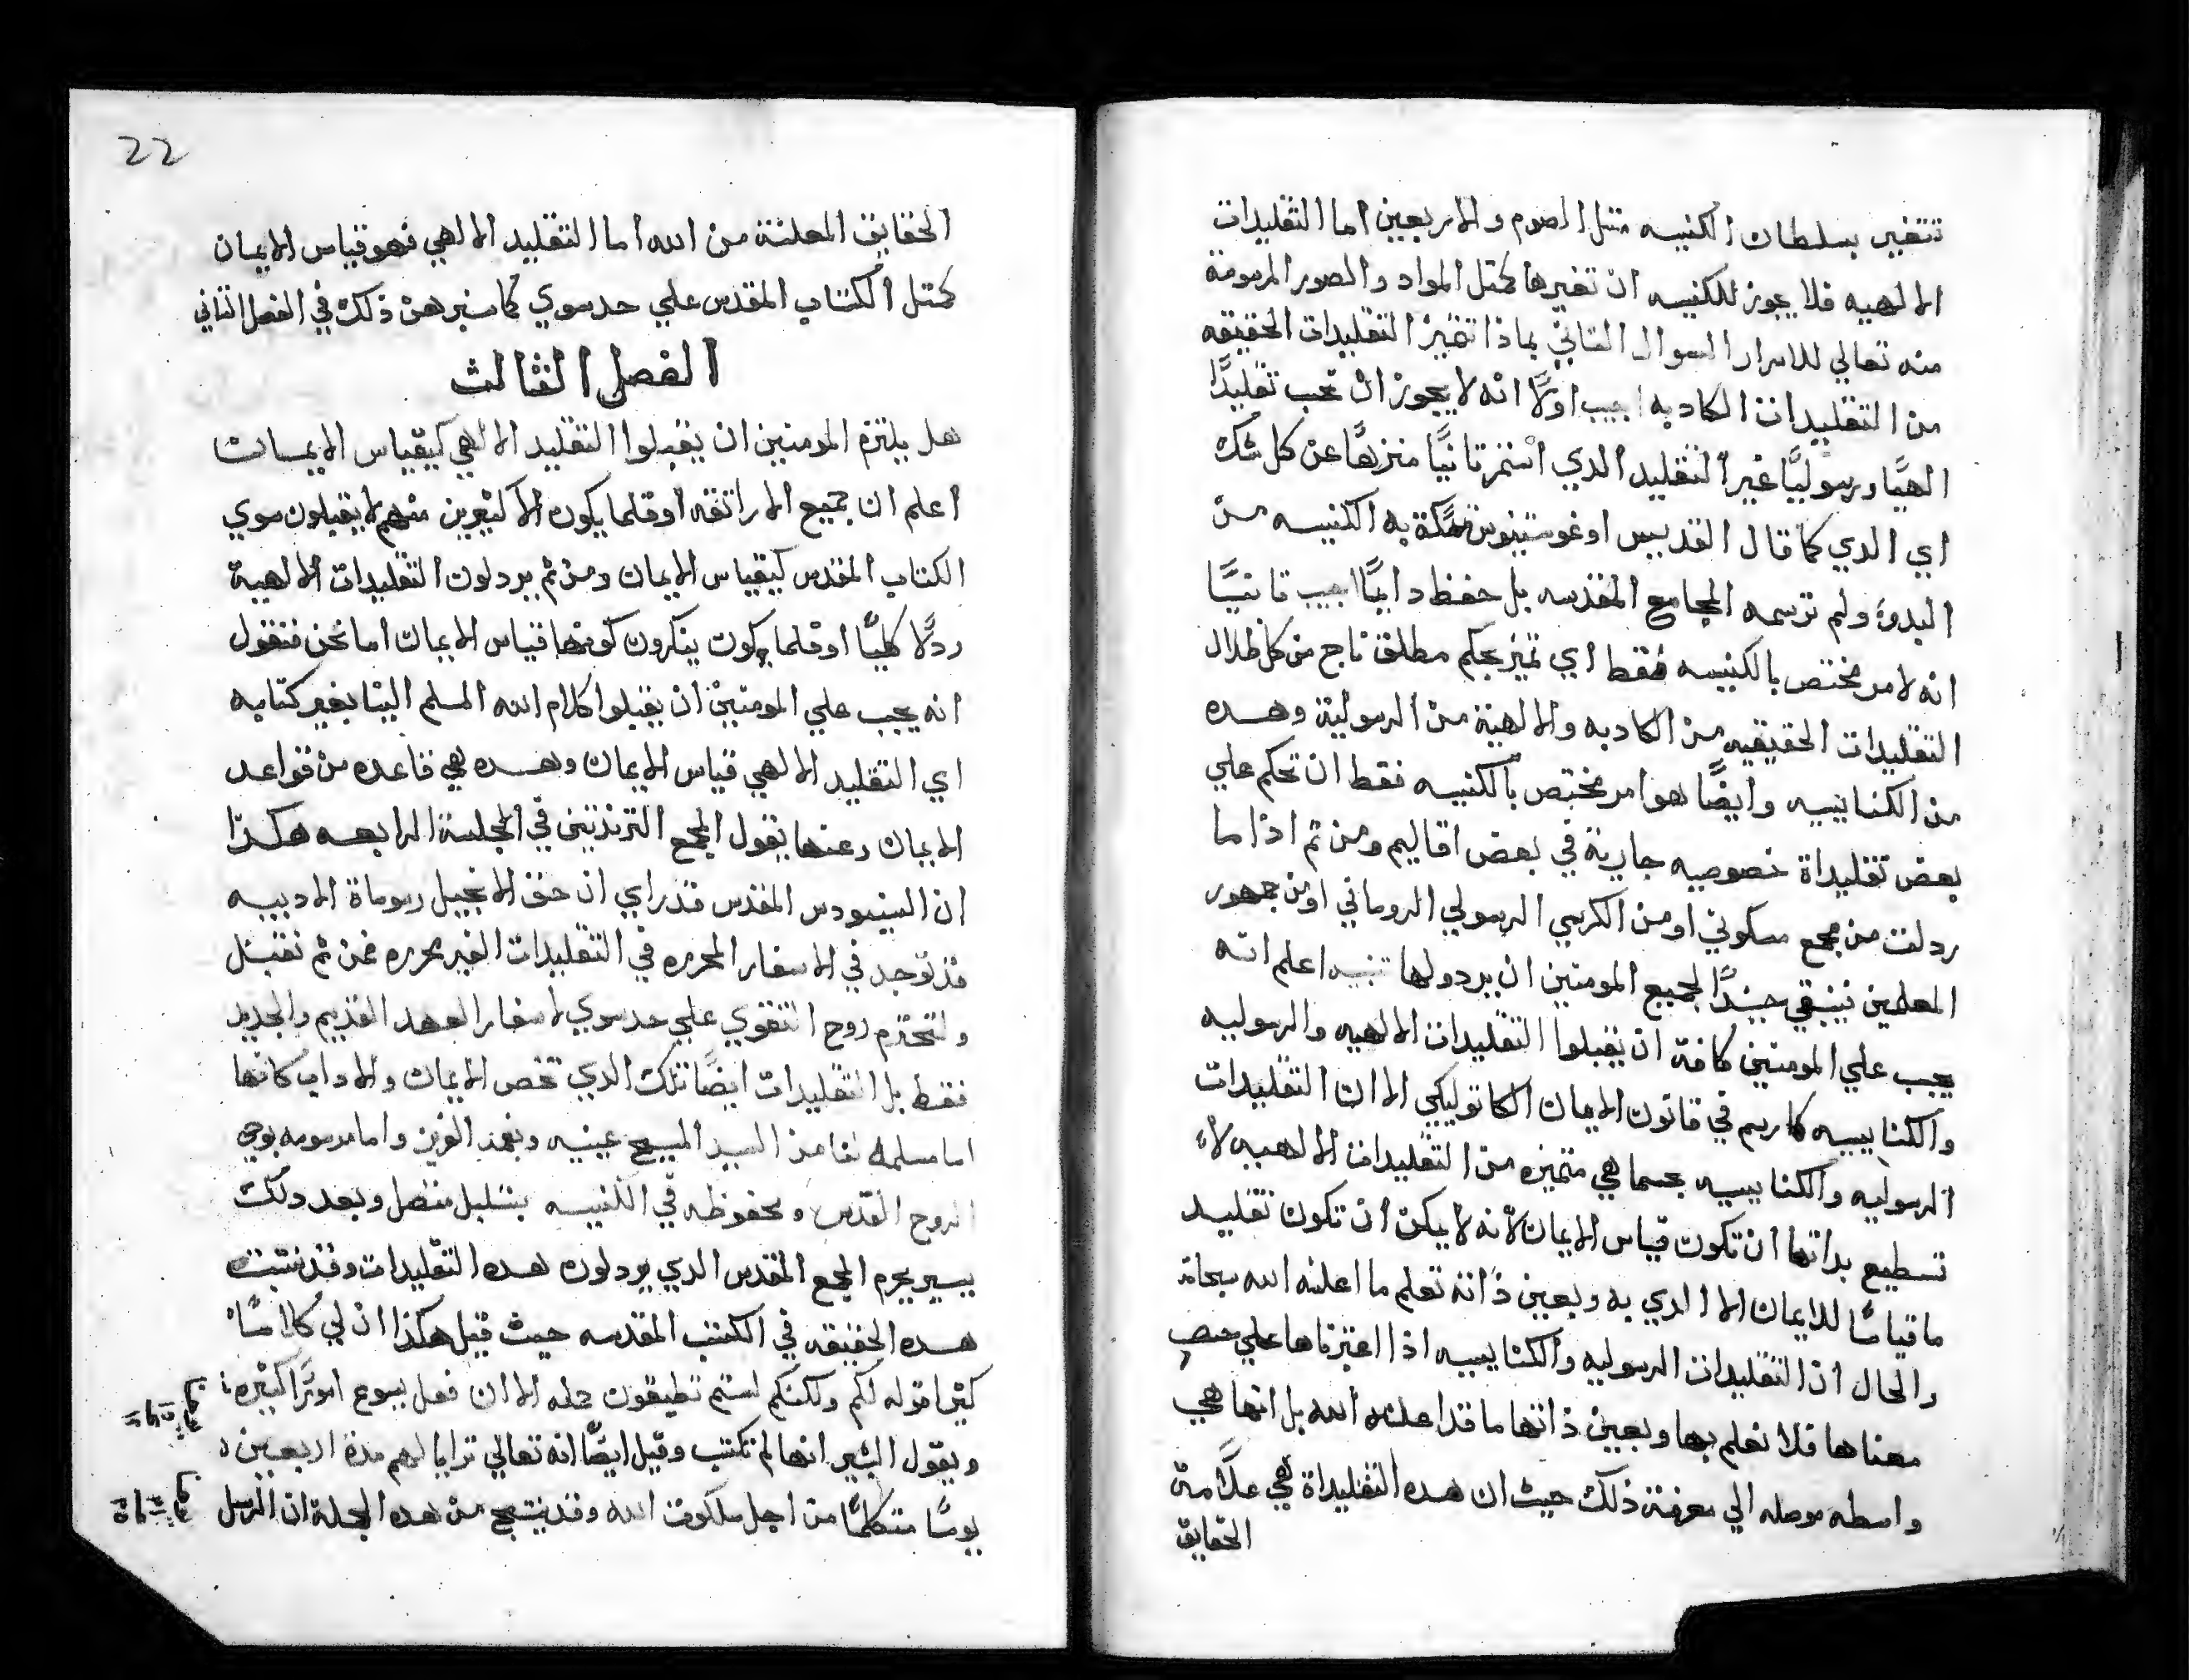 تتغير بسلطان الكنيسه مثل الصوم والاربعين اما التقليدات
الالهيه فلا يجوز للكنيسه ان تغيرها كمثل المواد والصور المرسومة
منه تعالي للاسرار السوال الثاني بماذا تتميز التقليدات الحقيقه
من التقليدات الكادبه اجيب اولًا انه لا يجوز ان نحسب تقليدًا
الهيًا ورسوليًا غير التقليد الدي استمر ثانيًا منزهًا عن كل شك
اي الدي كما قال القديس اوغوستينوس تمسكة به الكنيسه من
البدوة ولم ترسمه المجامع المقدسه بل حفظ دايمًا اجيب ثانيًا
انه لامر مختص بالكنيسه فقط اي تميز بحكم مطلق ناج من كل ظلال
التقليدات الحقيقيه من الكادبه والالهية من الرسولية وهده
من الكنايسيه وايضًا هو امر مختص بالكنيسه فقط ان تحكم علي
بعض تقليداة خصوصيه جارية في بعض اقاليم ومن ثم اذا ما
ردلت من مجمع مسكوني او من الكرسي الرسولي الروماني او من جمهور
المعلمين فينبغي جيدًا لجميع المومنين ان يردولها تنبيه اعلم انه
يجب علي المومنين كافة ان يقبلوا التقليدات الالهيه والرسوليه
والكنايسيه كما رسم في قانون الايمان الكاتوليكي الا ان التقليدات
الرسوليه والكنايسيه بحسبما هي متميزه من التقليدات الالهيه لا
تسطيع بداتها ان تكون قياس الايمان لانه لا يمكن ان تكون تقليد
ما قياسًا للايمان الا الدي به وبعين ذاته تعلم ما اعلنه الله سبحانه
والحال ان التقليدات الرسوليه والكنايسيه اذا اعتبرناها علي حصر
معناها فلا نعلم بها وبعين ذاتها ما قد اعلنه الله بل انها هي
واسطه موصله الي معرفة ذلك حيث ان هده التقليداة هي علامة
الحقايق
22
الحقايق المعلنة من الله اما التقليد الالهي فهو قياس الايمان
كمثل الكتاب المقدس علي حد سوي كما سنبرهن ذلك في الفصل الثاني
الفصل الثالث
هل يلتزم المومنين ان يقبلوا التقليد الالهي كيقياس الايمان
اعلم ان جميع الاراتقه او قلما يكون الاكثرين منهم لا يقبلون سوي
الكتاب المقدس كيقياس الايمان ومن ثم يردلون التقليدات الالهية
ردلًا كليًا او قلما يكون ينكرون كونها قياس الايمان اما نحن فنقول
انه يجب علي المومنين ان يقبلوا كلام الله المسلم الينا بغير كتابه
اي التقليد الالهي قياس الايمان وهده هي قاعده من قواعد
الايمان وعنها يقول المجمع التريدنتيني في الجلسة الرابعه هكذا
ان السينودس المقدس قد راي ان حق الانجيل رسوماة الادبيه
قد توجد في الاسفار المحرره في التقليدات الغير محرره فمن ثم نقتبل
ولنحترم روح التقوي علي حد سوي لاسفار العهد القديم والجديد
فقط بل التقليدات ايضًا تلك الدي تخص الايمان والاداب كانها
اما مسلمه لنا من السيد المسيح عينيه واما مرسومه بوحي
الروح القدس ومحفوظه في الكنيسه بتسلبل متصل وبعد دلك
يسير يحرم المجمع المقدس الدي يردلون هده التقليدات وقد تثبت
هده الحقيقه في الكتب المقدسه حيث قيل هكذا ان لي كلامًا
كثيرا قوله لكم ولكنكم لستم تطيقون حمله الا ان فعل يسوع امورًا كثيره
ويقول البشير انها لم تكتب وقيل ايضًا انه تعالي ترايا لهم مدة اربعين
يومًا متكلمًا من اجل ملكوت الله وقد ينتج من هده الجملة ان الرسل